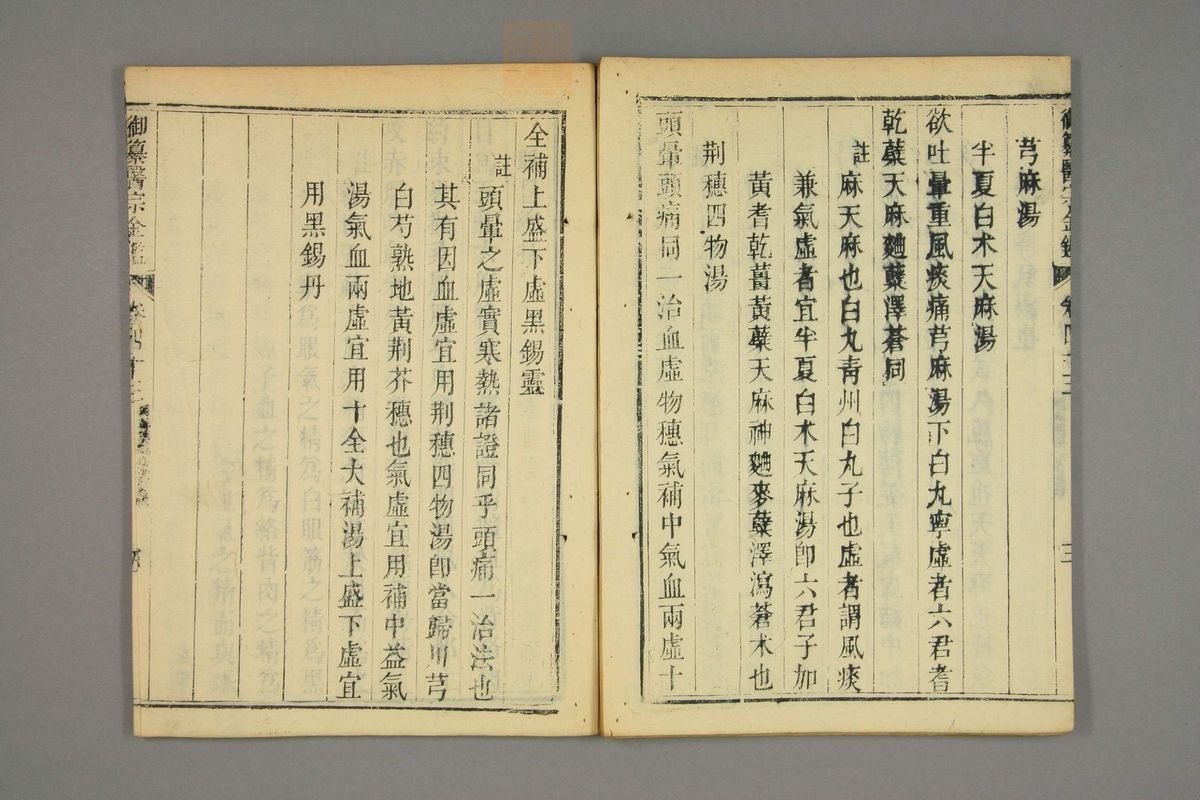 御纂醫宗金鑑 卷四十三
芎麻湯
半夏白术天麻湯
欲吐暈重風痰痛芎麻湯下白丸寧虛者六君耆
乾蘗天麻麯蘗澤蒼同
註 麻天麻也白丸青州白丸子也虛者謂風痰
兼氣虛者宜半夏白术天麻湯卽六君子加
黃耆乾薑黃蘗天麻神麯麥蘗澤瀉蒼术也
荆穗四物湯
頭暈頭痛同一治血虛物穗氣補中氣血兩虛十
全補上盛下虛黑錫靈
註 頭暈之虛實寒熱諸證同乎頭痛一治法也
其有因血虛宜用荆穗四物湯卽當歸川芎
白芍熟地黃荆芥穗也氣虛宜用補中益氣
湯氣血兩虛宜用十全大補湯上盛下虛宜
用黑錫丹
御纂醫宗金鑑